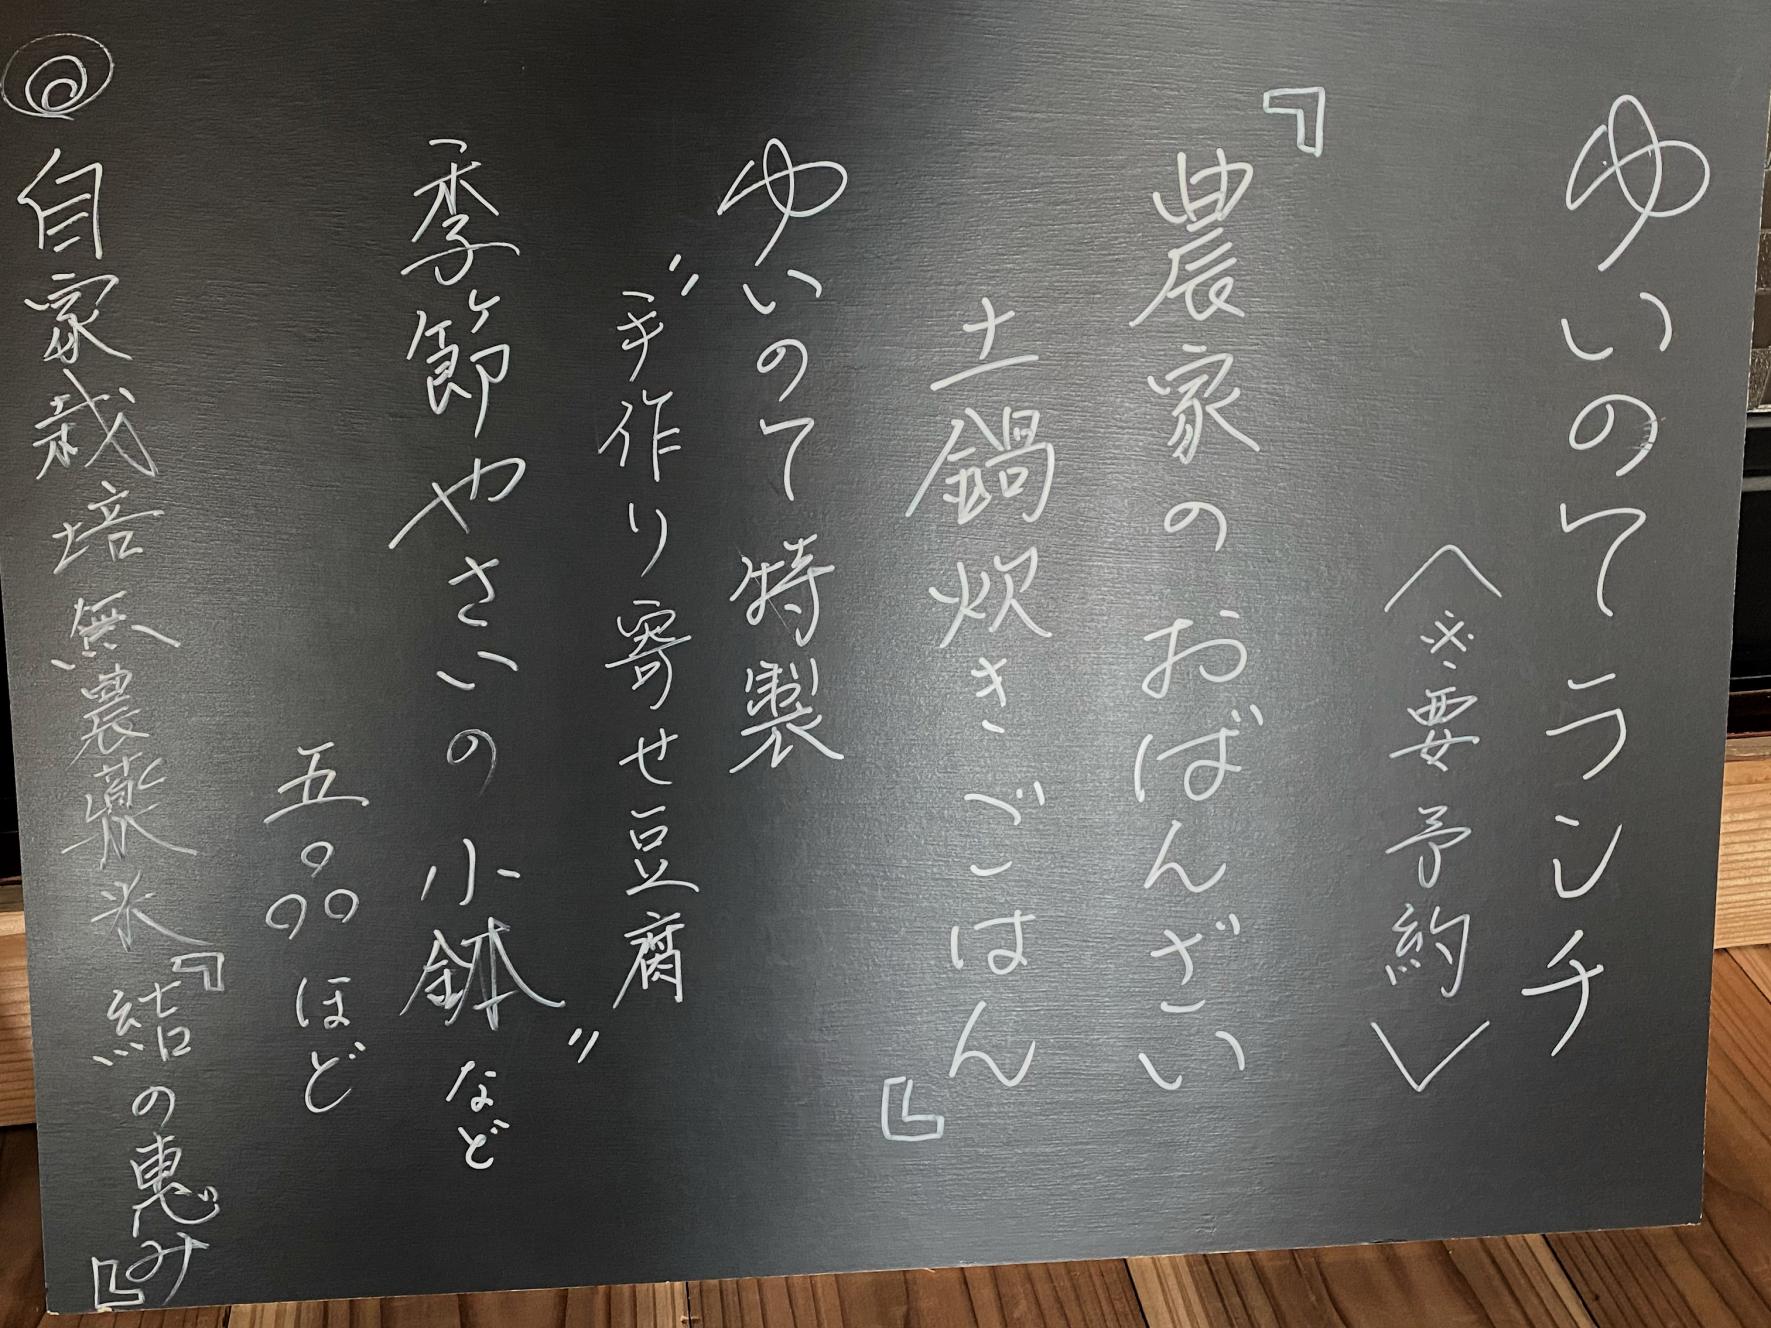 ゆいのてランチ
〈※要予約〉
『農家のおばんざい
土鍋炊きごはん』
ゆいのて特製
"手作り寄せ豆腐"
季節やさいの小鉢など
五〇〇〇ほど
◎自家栽培無農薬米『結の恵み』